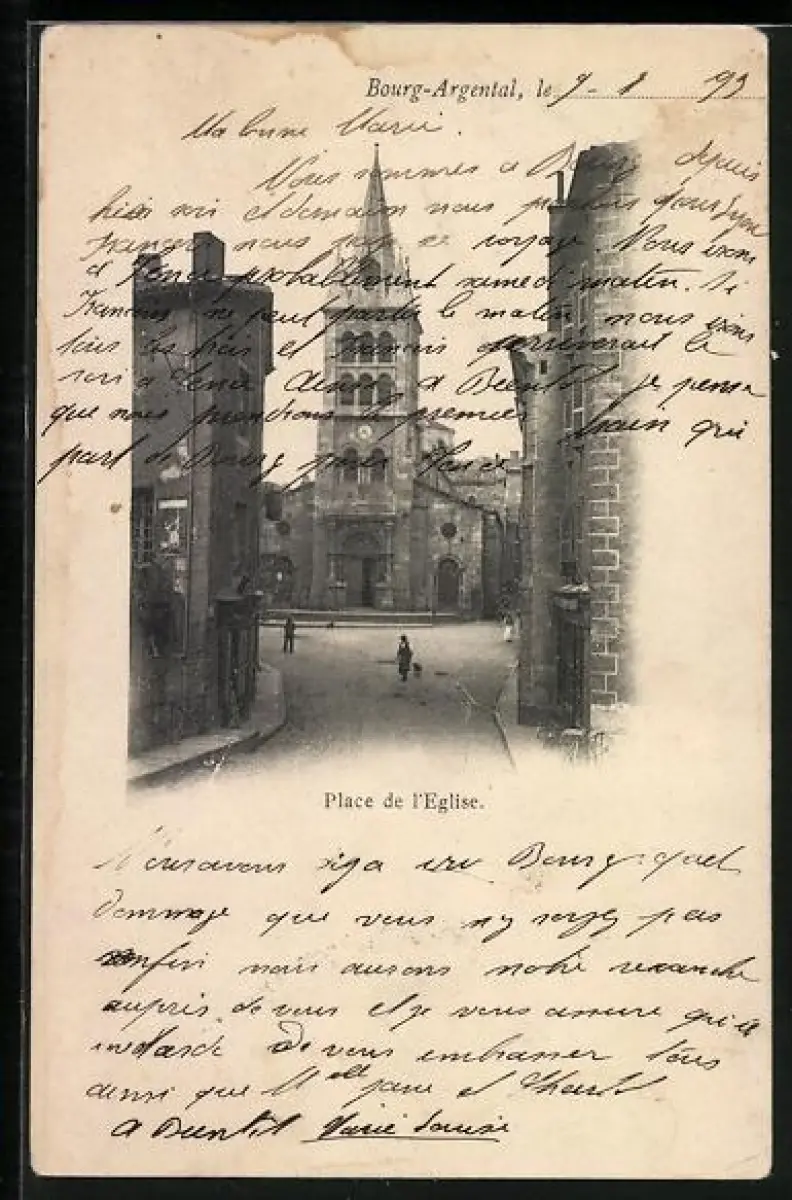 Bourg-Argental, le 9 - 8 93
Ma bonne Marie.
Nous sommes a Bourg depuis
hier soir et demain nous partons pour Lyon
nous de voyage. Nous irons
a probablement samedi matin. Si
Francois ne peut partir le matin nous irons
tous les trois et Francois arriverait le
soir a A Bientot je pense
que nous prendrons le premier train qui
part de Bourg pour
Place de l'Eglise.
Nous avons deja vu Bourg. quel
dommage que vous n'y soyez pas
enfin nous aurons notre revanche
aupres de vous et je vous assure qu'il
me tarde de vous embrasser tous
ainsi que Mlle et
A Bientot Marie Louise